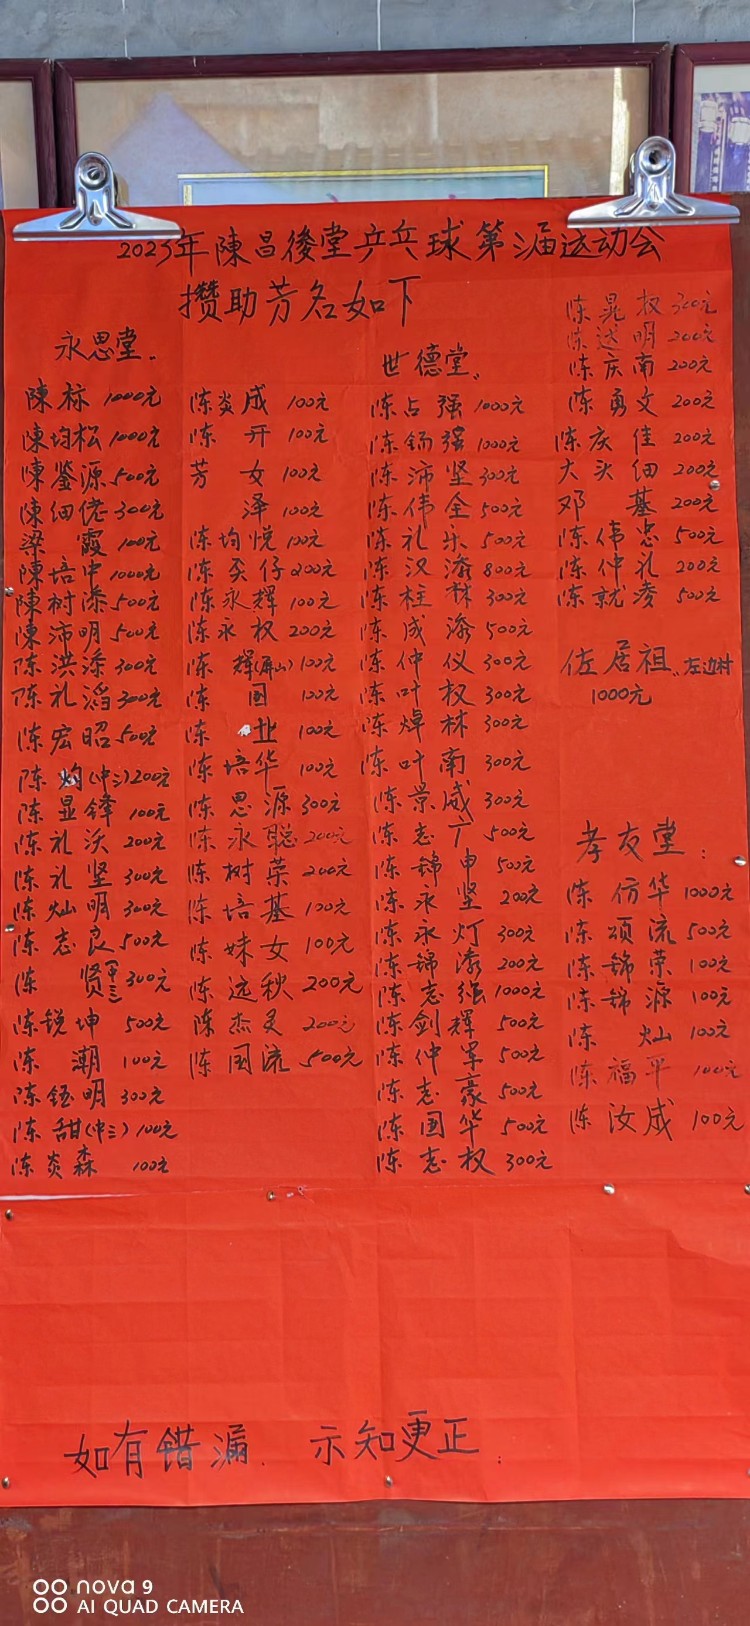 2023年陳昌後堂乒乓球第二届运动会
攒助芳名如下
永思堂
陳标 1000元
陳均松 1000元
陳鉴源 500元
陳细佬 300元
梁霞 100元
陳培中 1000元
陳树添 500元
陳沛明 500元
陈洪添 300元
陈礼滔 300元
陈宏昭 500元
陈灼(中三) 200元
陈显锋 100元
陈礼沃 200元
陈礼坚 300元
陈灿明 300元
陈志良 500元
陈贤 300元
陈锐坤 500元
陈潮 100元
陈钰明 300元
陈甜(中三) 100元
陈炎森 100元
陈炎成 100元
陈开 100元
芳女 100元
泽 100元
陈均悦 100元
陈仔 200元
陈永辉 100元
陈永权 200元
陈辉(屏山) 100元
陈国 100元
陈业 100元
陈培华 100元
陈思源 300元
陈永聪 200元
陈树荣 200元
陈培基 100元
陈妹女 100元
陈远秋 200元
陈杰灵 200元
陈国流 500元
世德堂
陈占强 1000元
陈锡强 1000元
陈沛坚 300元
陈伟全 500元
陈礼乐 500元
陈汉添 800元
陈柱林 300元
陈成添 500元
陈仲仪 300元
陈叶权 300元
陈焯林 300元
陈叶南 300元
陈景威 300元
陈志广 500元
陈锦申 500元
陈永坚 200元
陈永灯 300元
陈锦添 200元
陈志强 1000元
陈剑辉 500元
陈仲军 500元
陈志豪 500元
陈国华 500元
陈志权 300元
陈晃权 300元
陈达明 200元
陈庆南 200元
陈勇文 200元
陈庆佳 200元
大头细 200元
邓基 200元
陈伟忠 500元
陈仲礼 200元
陈就凌 500元
佐居祖 左边村
1000元
孝友堂：
陈仿华 1000元
陈颂流 500元
陈锦荣 100元
陈锦源 100元
陈灿 100元
陈福平 100元
陈汝成 100元
如有错漏、示知更正：
nova 9
AI QUAD CAMERA